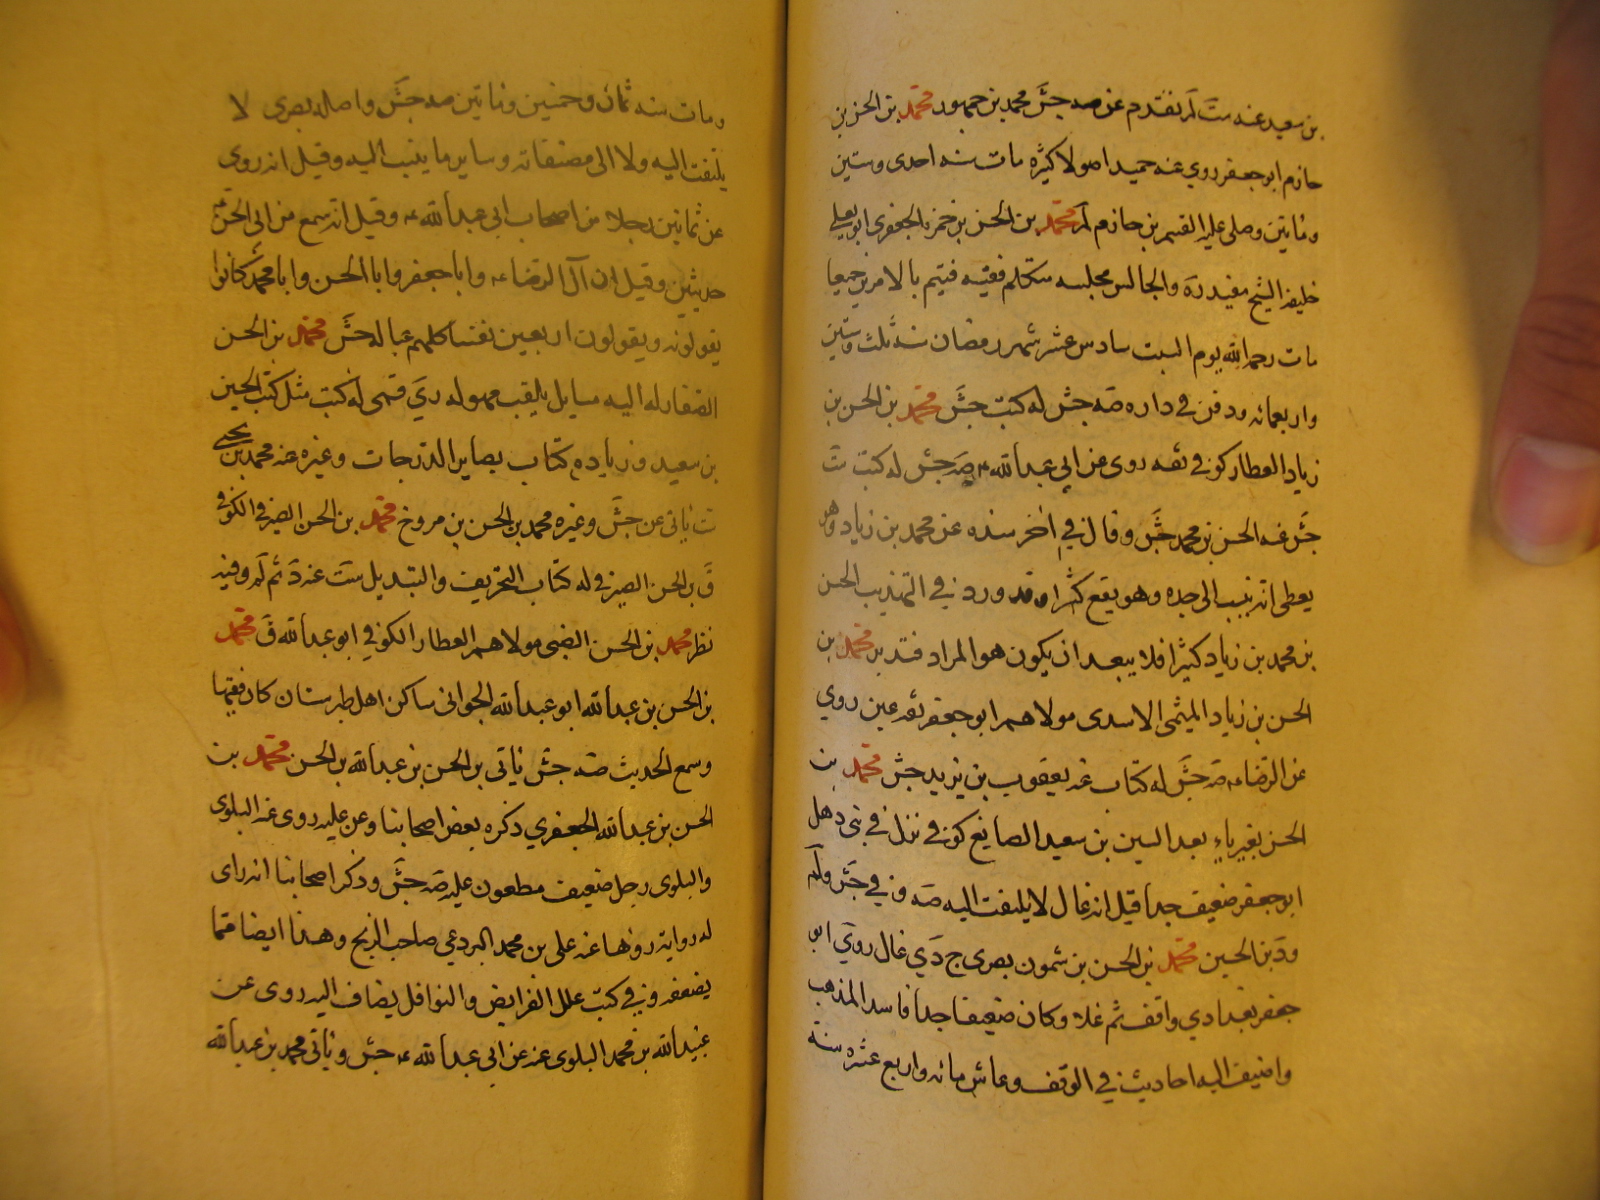 بن سعيد عنه ست لم تقدم عن صه جش محمد بن جمهور محمد بن الحسن بن
حازم ابو جعفر روي عنه حميد اصولا كثيرة مات سنه احدى وستين
ومائتين وصلى عليه القسم بن حازم لم محمد بن الحسن بن حمزة الجعفرى ابو يعلي
خليفة الشيخ مفيد ره والجالس مجلسه متكلم فقيه فيتم بالامرين جميعا
مات رحمه الله يوم السبت سادس عشر شهر رمضان سنه ثلث وستين
واربعمائه ودفن في داره صه جش له كتب جش محمد بن الحسن بن
زياد العطار كوفي ثقه روى عن ابي عبد الله ع صه جش له كتب ست
جش عنه الحسن بن محمد جش وقال في اخر سنده عن محمد بن زياد وهو
يعطى انه ينسب الى جده وهو يقع كثيرا وقد ورد في التهذيب الحسن
بن محمد بن زياد كثيرا فلا يبعد ان يكون هو المراد فتدبر محمد بن
الحسن بن زياد الميثمى الاسدى مولاهم ابو جعفر ثقه عين روي
عن الرضا ع صه جش له كتاب عنه يعقوب بن يزيد جش محمد بن
الحسن بغير ياء بعد السين بن سعيد الصايغ كوفي نزل في بني ذهل
ابو جعفر ضعيف جدا قيل انه غال لا يلتفت اليه صه وفي جش ولم
ود بن الحسين محمد بن الحسن بن شمون بصرى ج دي غال روي ابو
جعفر بغدادي واقف ثم غلا وكان ضعيفا جدا فاسد المذهب
واضيف اليه احاديث في الوقف وعاش مائه واربع عشره سنه
ومات سنه ثمان وخمسين ومائتين صه جش واصله بصرى لا
يلتفت اليه ولا الى مصنفاته وساير ما ينسب اليه وقيل انه روى
عن ثمانين رجلا من اصحاب ابي عبد الله ع وقيل انه سمع من ابي الحسن ع
حديثين وقيل ان آل الرضا ع وابا جعفر وابا الحسن وابا محمد كانوا
يقولونه ويقولون اربعين نفسا كلهم عياله جش محمد بن الحسن
الصفار له اليه مسايل يلقب ممولة ري قمى له كتب مثل كتب الحسين
بن سعيد وزياده كتاب بصاير الدرجات وغيره عنه محمد بن يحيى
ست ياتى عن جش وغيره محمد بن الحسن بن فروخ محمد بن الحسن الصيرفي الكوفي
ق بن الحسن الصيرفي له كتاب التحريف والتبديل ست عنه د ثم لم وفيه
نظر محمد بن الحسن الضبى مولاهم العطار الكوفي ابو عبد الله ق محمد
بن الحسن بن عبد الله ابو عبد الله الجوانى ساكن اهل طبرستان كان فقيها
وسمع الحديث صه جش ياتى بن الحسن بن عبد الله بن الحسن محمد بن
الحسن بن عبد الله الجعفري ذكره بعض اصحابنا وعن عليه روى عنه البلوى
والبلوى رجل ضعيف مطعون عليه صه جش وذكر اصحابنا انه راى
له رواية رواها عنه على بن محمد البردعي صاحب الزنج وهذا ايضا مما
يضعفه وفي كتب علل الفرايض والنوافل يضاف اليه روى عن
عبيد الله بن محمد البلوى عنه عن ابي عبد الله ع جش وياتى محمد بن عبد الله